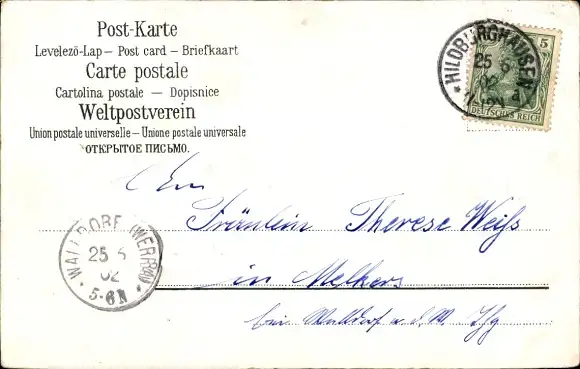 Post-Karte
Levelezö-Lap – Post card – Briefkaart
Carte postale
Cartolina postale — Dopisnice
Weltpostverein
Union postale universelle – Unione postale universale
ОТКРЫТОЕ ПИСЬМО.
HILDBURGHAUSEN
25 6
02
5
DEUTSCHES REICH
Fräulein Therese Weiß
in Melkers
bei Walldorf a. d. W.
WALLDORF (WERRA)
25 6
02
5-6N